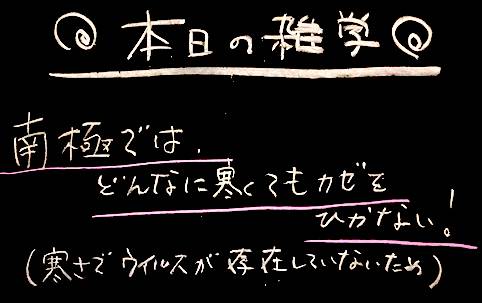 本日の雑学
南極では、
どんなに寒くてもカゼを
ひかない!
(寒さでウイルスが存在していないため)